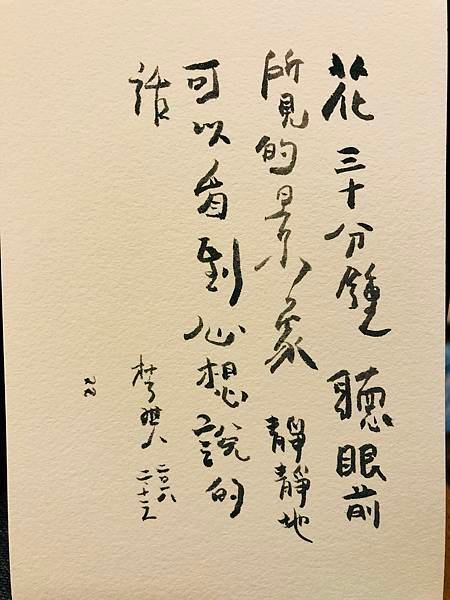 花 三十分鐘 聽眼前
所見的景象 靜靜地
可以看到心想說的
話
二〇一八